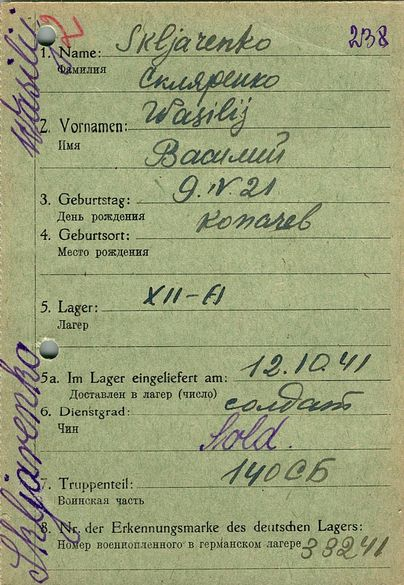 Wasilij
Skljarenko
2
238
1. Name: Skljarenko
Фамилия
Скляренко
2. Vornamen: Wasilij
Имя
Василий
3. Geburtstag: 9.IV.21
День рождения
4. Geburtsort: Копачев
Место рождения
5. Lager: XII-A
Лагер
5a. Im Lager eingeliefert am: 12.10.41
Доставлен в лагер (число)
6. Dienstgrad: солдат
Чин
Sold.
7. Truppenteil: 140СБ
Воинская часть
8. Nr. der Erkennungsmarke des deutschen Lagers:
Номер военнопленного в германском лагере 38241